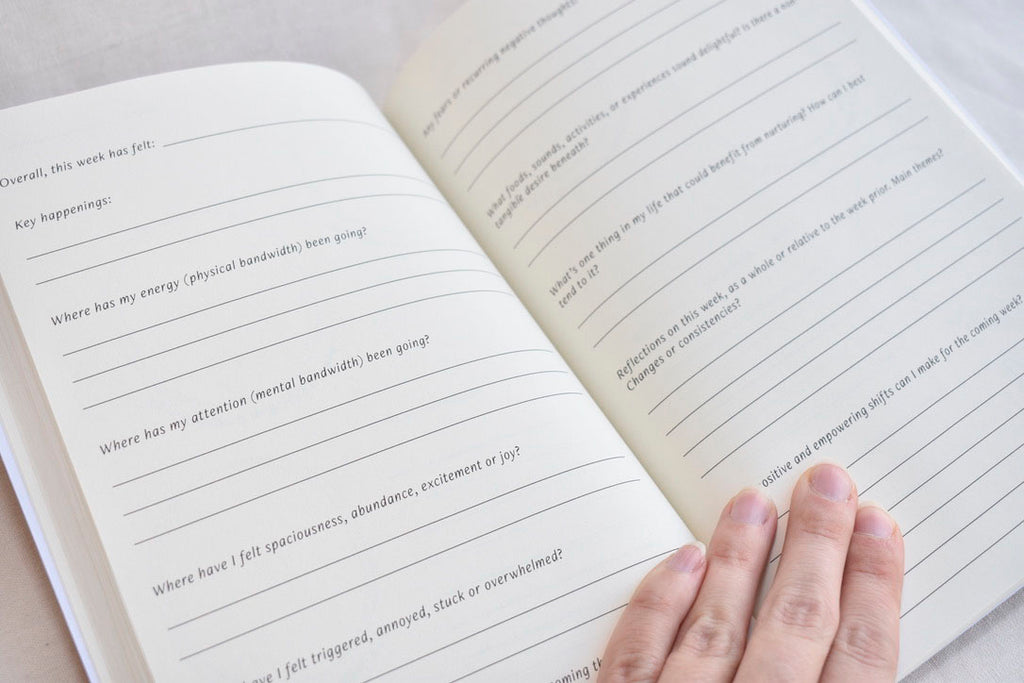 Overall, this week has felt:
Key happenings:
Where has my energy (physical bandwidth) been going?
Where has my attention (mental bandwidth) been going?
Where have I felt spaciousness, abundance, excitement or joy?
have I felt triggered, annoyed, stuck or overwhelmed?
coming th
Key fears or recurring negative thoughts?
What foods, sounds, activities, or experiences sound delightful? Is there a non-
tangible desire beneath?
What's one thing in my life that could benefit from nurturing? How can I best
tend to it?
Reflections on this week, as a whole or relative to the week prior. Main themes?
Changes or consistencies?
ositive and empowering shifts can I make for the coming week?